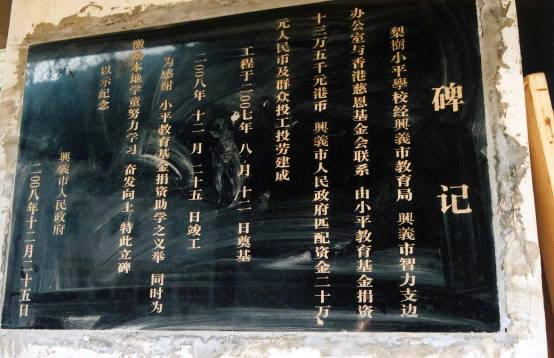 碑记
梨樹小平學校經興義市教育局 興義市智力支边
办公室与香港慈恩基金会联系 由小平教育基金捐资
十三万五千元港币 興義市人民政府匹配资金二十万
元人民币及群众投工投劳建成
工程于二00七年 八 月 十二 日奠基
二00八年 十二 月 二十五 日竣工
为感谢 小平教育基金捐资助学之义举 同时为
激励本地学童努力学习 奋发向上 特此立碑
以示纪念
興義市人民政府
二00八年十二月二十五日